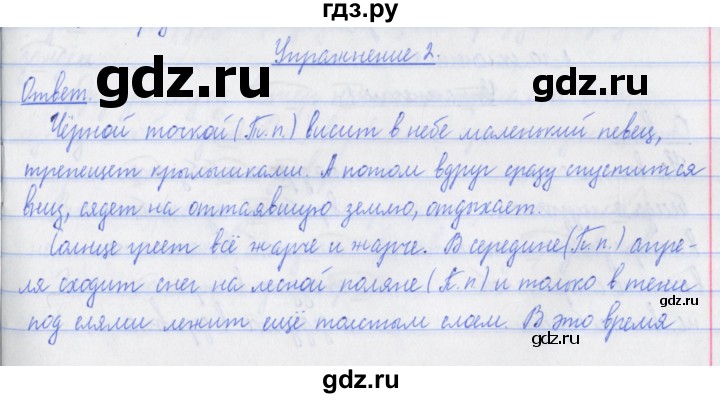 гдз.ру
Упражнение 2.
gdz.ru gdz.ru
Ответ.
Чёрной точкой (Т.п.) висит в небе маленький певец,
трепещет крылышками. А потом вдруг сразу спустится
вниз, сядет на оттаявшую землю, отдыхает.
gdz.ru gdz.ru
Солнце греет всё жарче и жарче. В середине (П.п.) апре-
ля сходит снег на лесной поляне (П.п) и только в тени
под елями лежит ещё толстым слоем. В это время
gdz.ru gdz.ru
gdz.ru